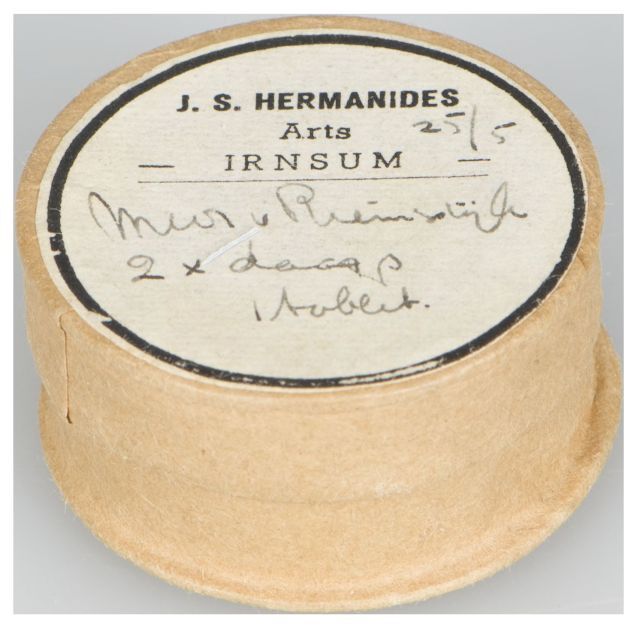 J. S. HERMANIDES
Arts 25/5
— IRNSUM —
Mevr v
2 x daags
1 tablet.